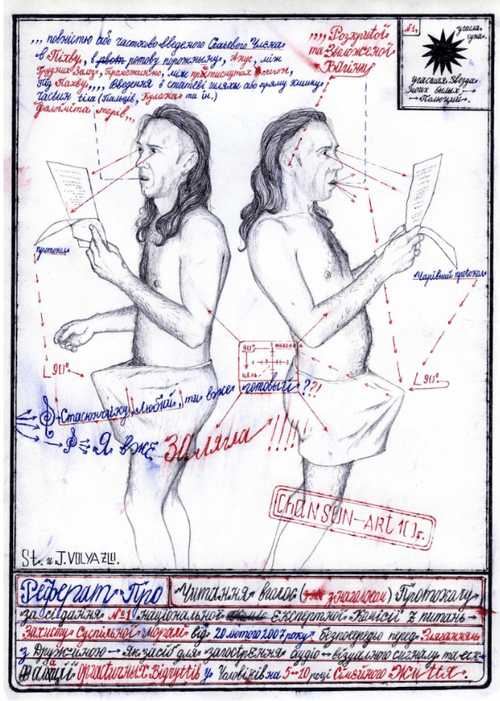 ,,, повністю або частково введеного Статевого Члена
в Піхву, в ротову порожнину, Анус, між
Грудних Залоз, проміжність, між
під Пахву,,,, Введення в статеві шляхи або пряму кишку
частин тіла (пальців, Кулака та ін.)
Фалоімітаторів,,,
,,,, Розкритої
та Зволоженої
Вагіни
№1,
угасла
угасшая Звезда
моих былых
Полюций.
протокол
Чарівний протокол
90°
90°
90°
цель
Стасюнчику, Любий, ти вже готовый ???!
Я вже ЗаЛягла !!!!!
ChAN'SON-ART 10г.
St. u. J. VOLYAZLO.
Реферат Про "Читання вголос ( з наголосом) Протоколу
засідання №1 національної Експертної Комісії з питань
Захисту Суспільної Моралі від 20 лютого 2007 року, безпосередньо перед Зляганням
з Дружиною → Як засіб для загострення аудіо-візуального сигналу та
Оргастичних Відчуттів у Чоловіків на 5-10 році Сімейного Життя.